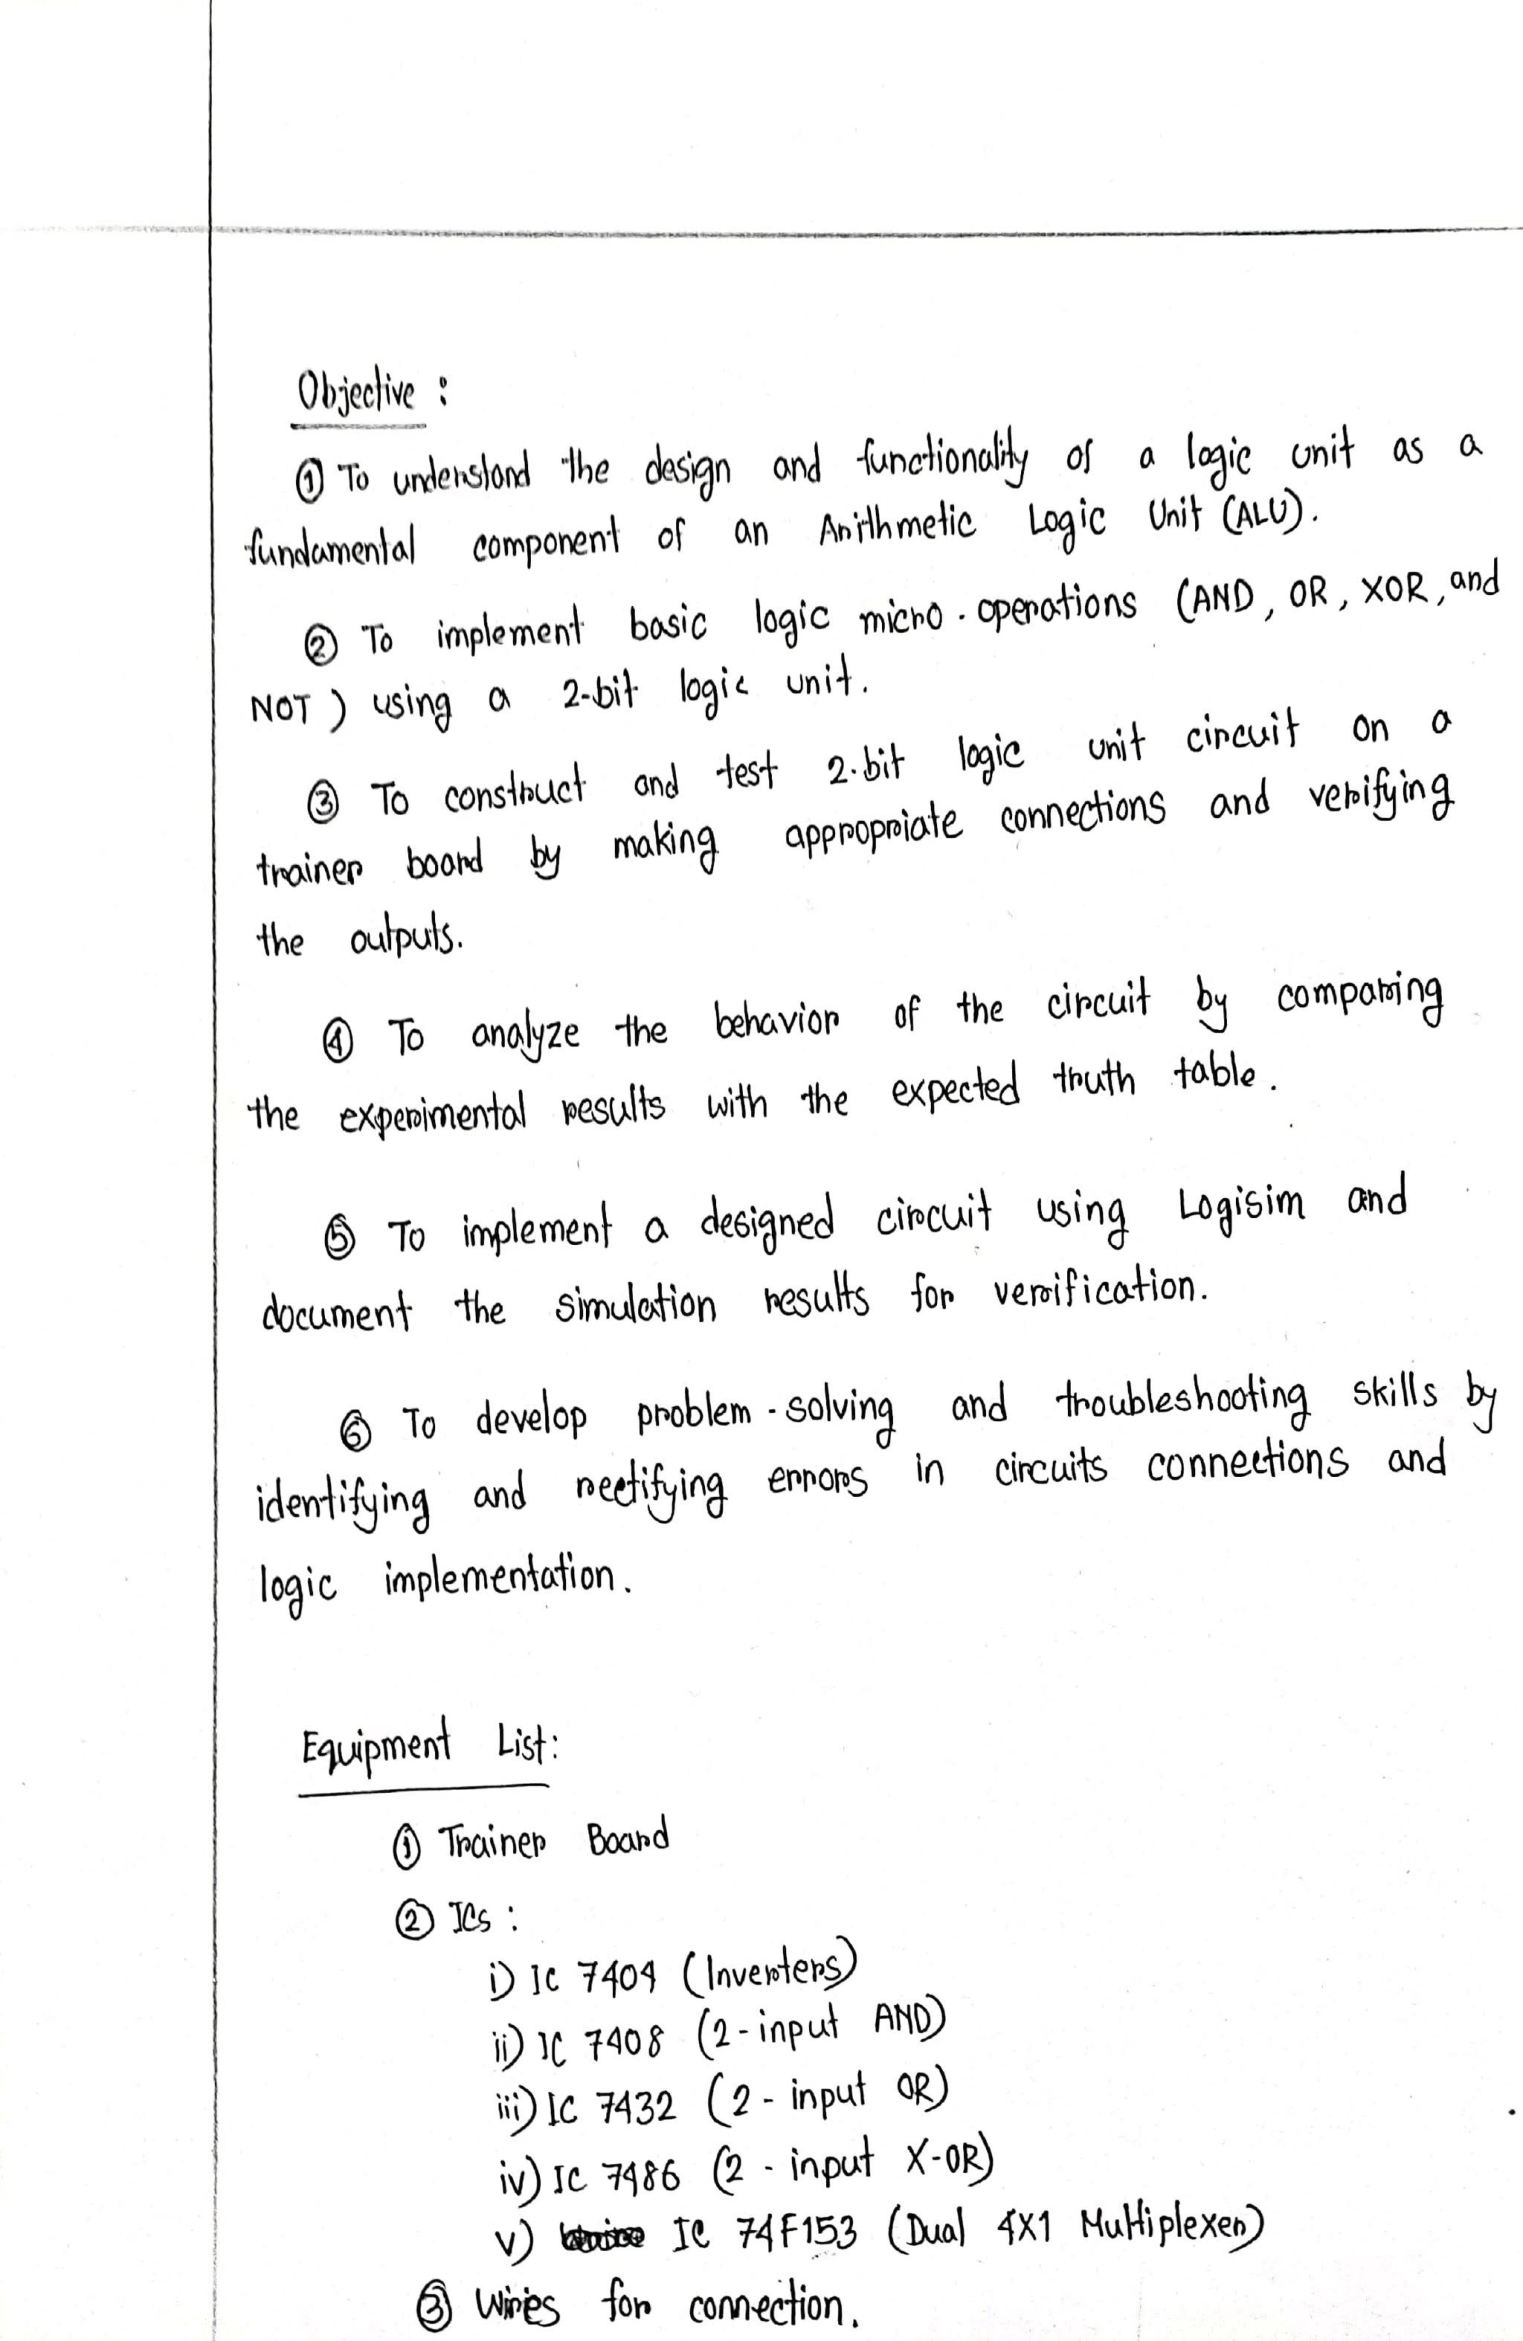 Objective :
① To understand the design and functionality of a logic unit as a
fundamental component of an Arithmetic Logic Unit (ALU).
② To implement basic logic micro-operations (AND, OR, XOR, and
NOT) using a 2-bit logic unit.
③ To construct and test 2-bit logic unit circuit on a
trainer board by making appropriate connections and verifying
the outputs.
④ To analyze the behavior of the circuit by comparing
the experimental results with the expected truth table.
⑤ To implement a designed circuit using Logisim and
document the simulation results for verification.
⑥ To develop problem-solving and troubleshooting skills by
identifying and rectifying errors in circuits connections and
logic implementation.
Equipment List:
① Trainer Board
② ICs :
i) IC 7404 (Inverters)
ii) IC 7408 (2-input AND)
iii) IC 7432 (2-input OR)
iv) IC 7486 (2-input X-OR)
v) IC 74F153 (Dual 4X1 Multiplexer)
③ Wires for connection.